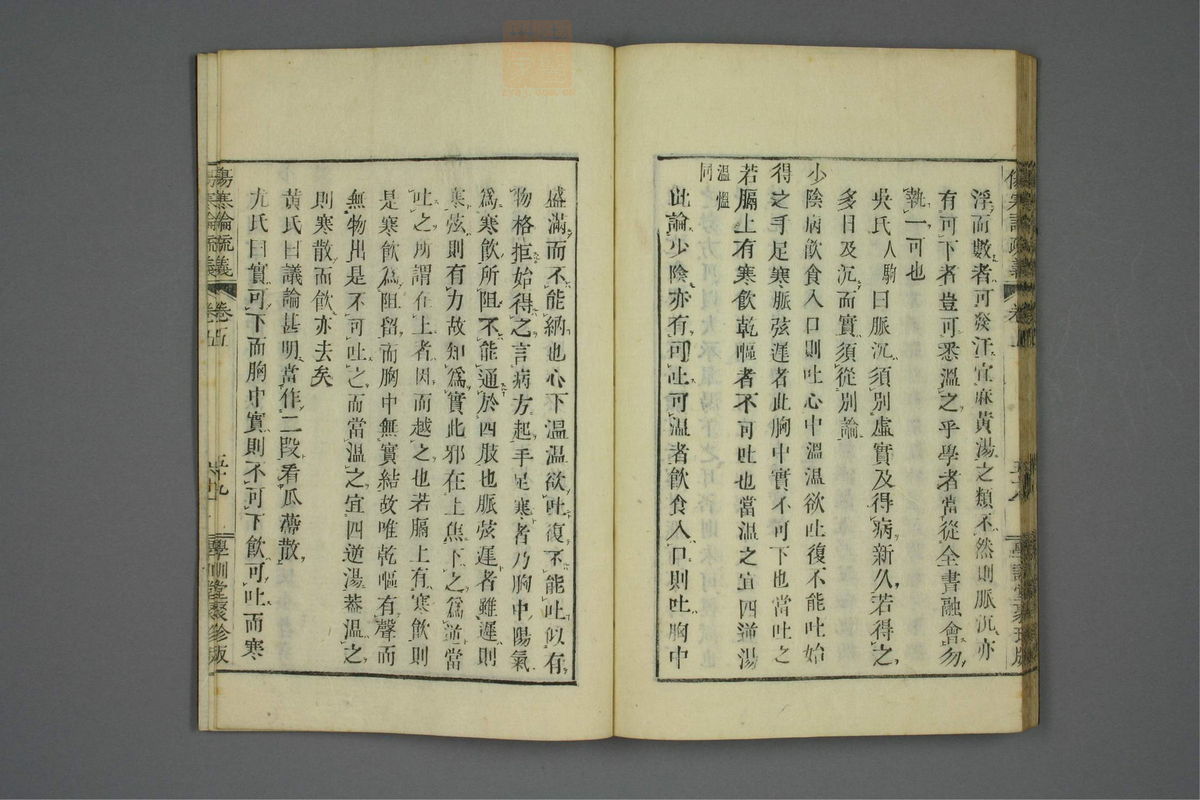 浮而數者可發汗宜麻黃湯之類不然則脈沉亦
有可下者豈可悉溫之乎學者當從全書融會勿
執一可也
吳氏人駒曰脈沉須別虛實及得病新久若得之
多日及沉而實須從別論
少陰病飲食入口則吐心中溫溫欲吐復不能吐始
得之手足寒脈弦遲者此胸中實不可下也當吐之
若膈上有寒飲乾嘔者不可吐也當溫之宜四逆湯
溫慍
同
此論少陰亦有可吐可溫者飲食入口則吐胸中
傷寒論疏義
卷五
五十九
學訓堂聚珍版
盛滿而不能納也心下溫溫欲吐復不能吐似有
物格拒始得之言病方起手足寒者乃胸中陽氣
爲寒飲所阻不能通於四肢也脈弦遲者雖遲則
寒弦則有力故知爲實此邪在上焦下之爲逆當
吐之所謂在上者因而越之也若膈上有寒飲則
是寒飲爲阻留而胸中無實結故唯乾嘔有聲而
無物出是不可吐之而當溫之宜四逆湯蓋溫之
則寒散而飲亦去矣
黃氏曰議論甚明當作二段看瓜蒂散
尤氏曰實可下而胸中實則不可下飲可吐而寒
傷寒論疏義
卷五
學訓堂聚珍版